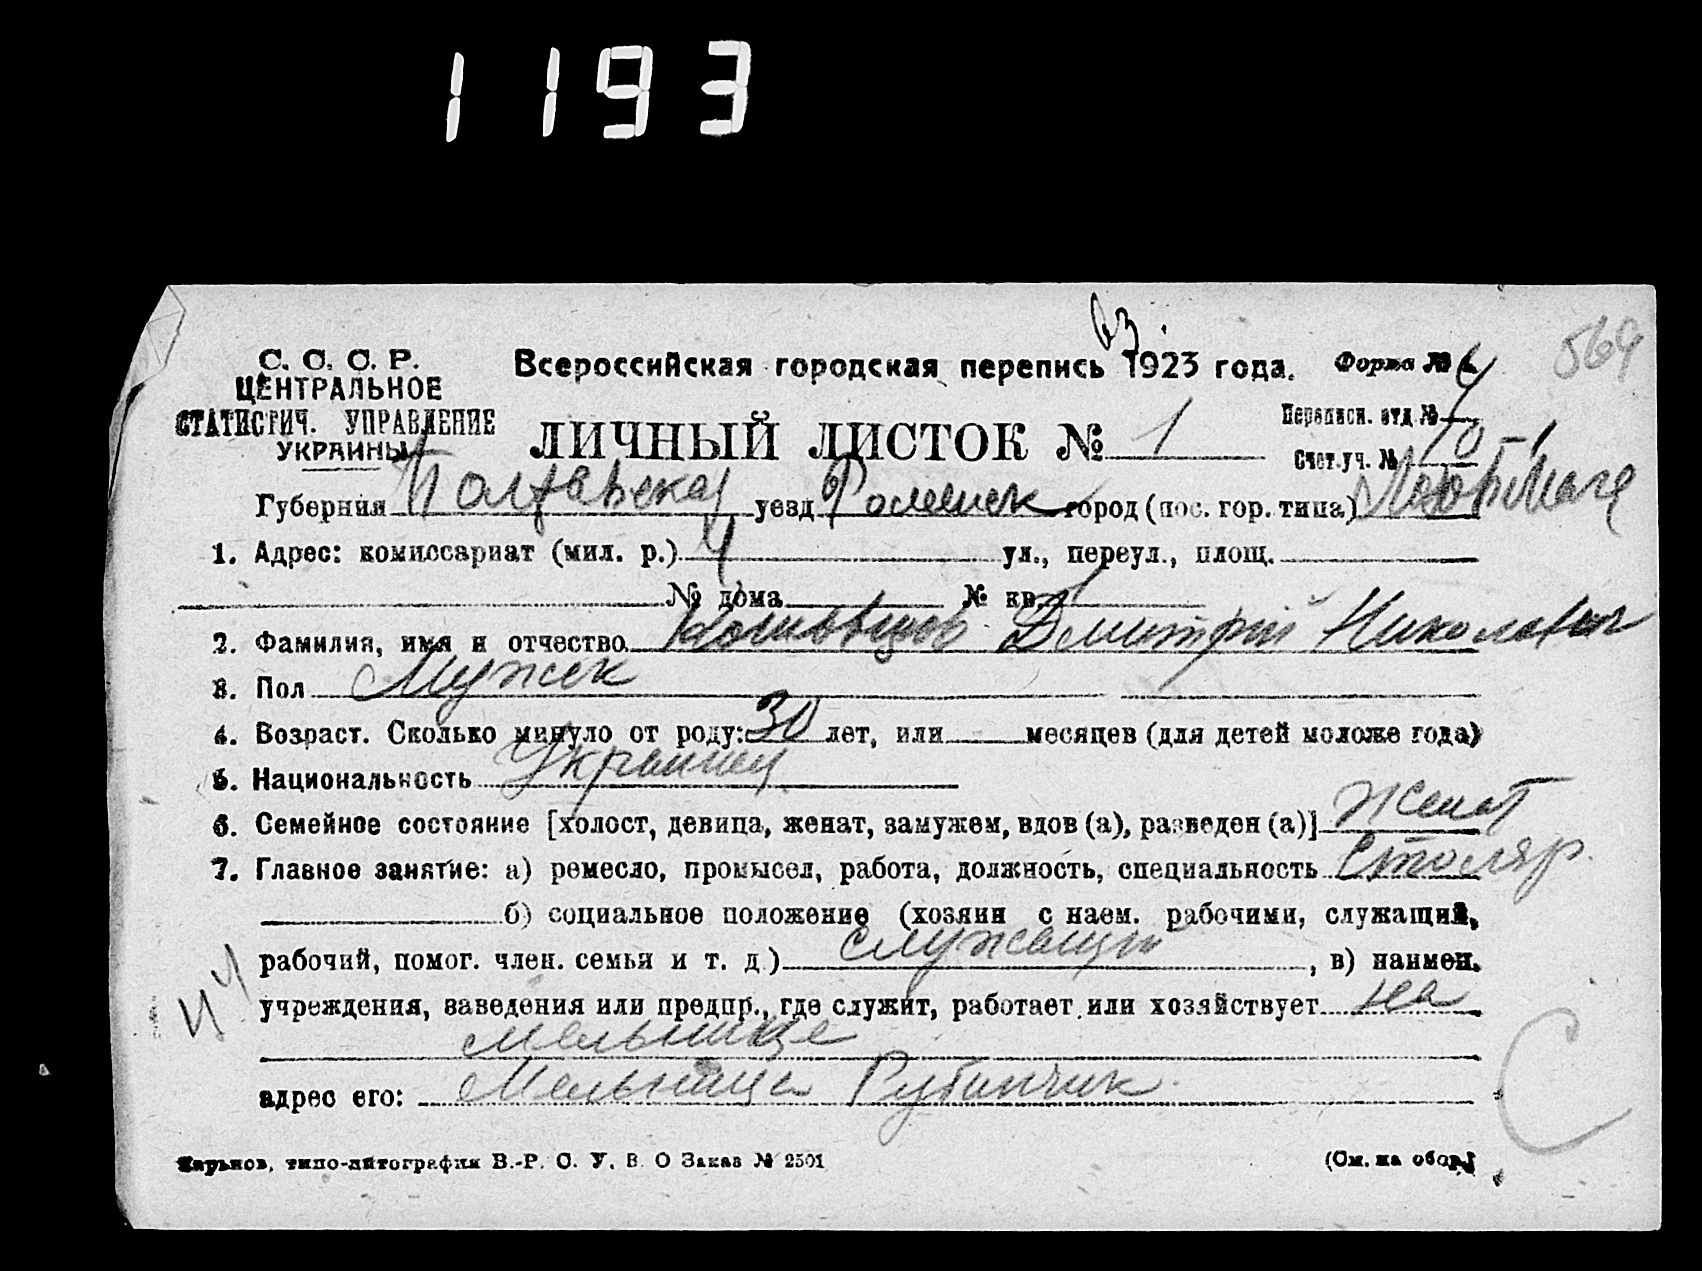 1193
вз.
564
С. С. С. Р.
ЦЕНТРАЛЬНОЕ
СТАТИСТИЧ. УПРАВЛЕНИЕ
УКРАИНЫ
Всероссийская городская перепись 1923 года.
Форма №
ЛИЧНЫЙ ЛИСТОК № 1
Переписн. отд. №
Счет. уч. №
Губерния Полтавская уезд Роменск город (пос. гор. типа)
1. Адрес: комиссариат (мил. р.) 4 ул., переул., площ.
№ дома № кв.
2. Фамилия, имя и отчество Дмитрий Николаевич
3. Пол Мужск
4. Возраст. Сколько минуло от роду: 30 лет, или месяцев (для детей моложе года)
5. Национальность Украинец
6. Семейное состояние [холост, девица, женат, замужем, вдов (а), разведен (а)] Женат
7. Главное занятие: а) ремесло, промысел, работа, должность, специальность Столяр
б) социальное положение (хозяин с наем. рабочими, служащий,
рабочий, помог. член. семьи и т. д.) служащий, в) наимен.
учреждения, заведения или предпр., где служит, работает или хозяйствует на
мельнице
адрес его: Мельница Рубинчик
Харьков, типо-литография В.-Р. С. У. В. О Заказ № 2501
(См. на обор.)
С